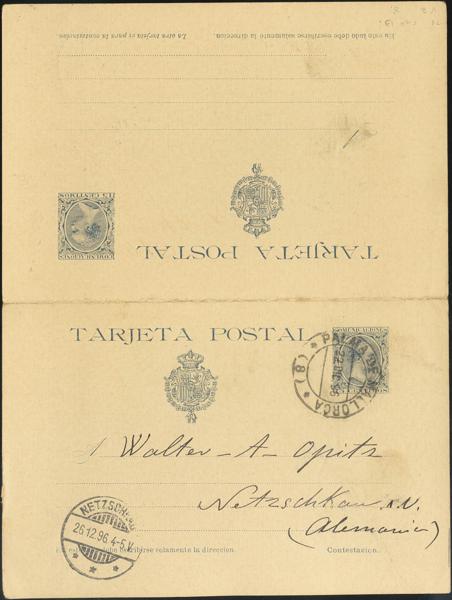 La otra tarjeta es para la contestación.
En este lado debe escribirse solamente la dirección.
TARJETA POSTAL
COMUNICACIONES
15 CENTIMOS
TARJETA POSTAL
COMUNICACIONES
PALMA DE MALLORCA
(8)
Walter - A - Opitz
Netzschkau
(Alemania)
NETZSCHKAU
26.12.96.4-5.V.
En este lado debe escribirse solamente la direccion.
Contestacion.